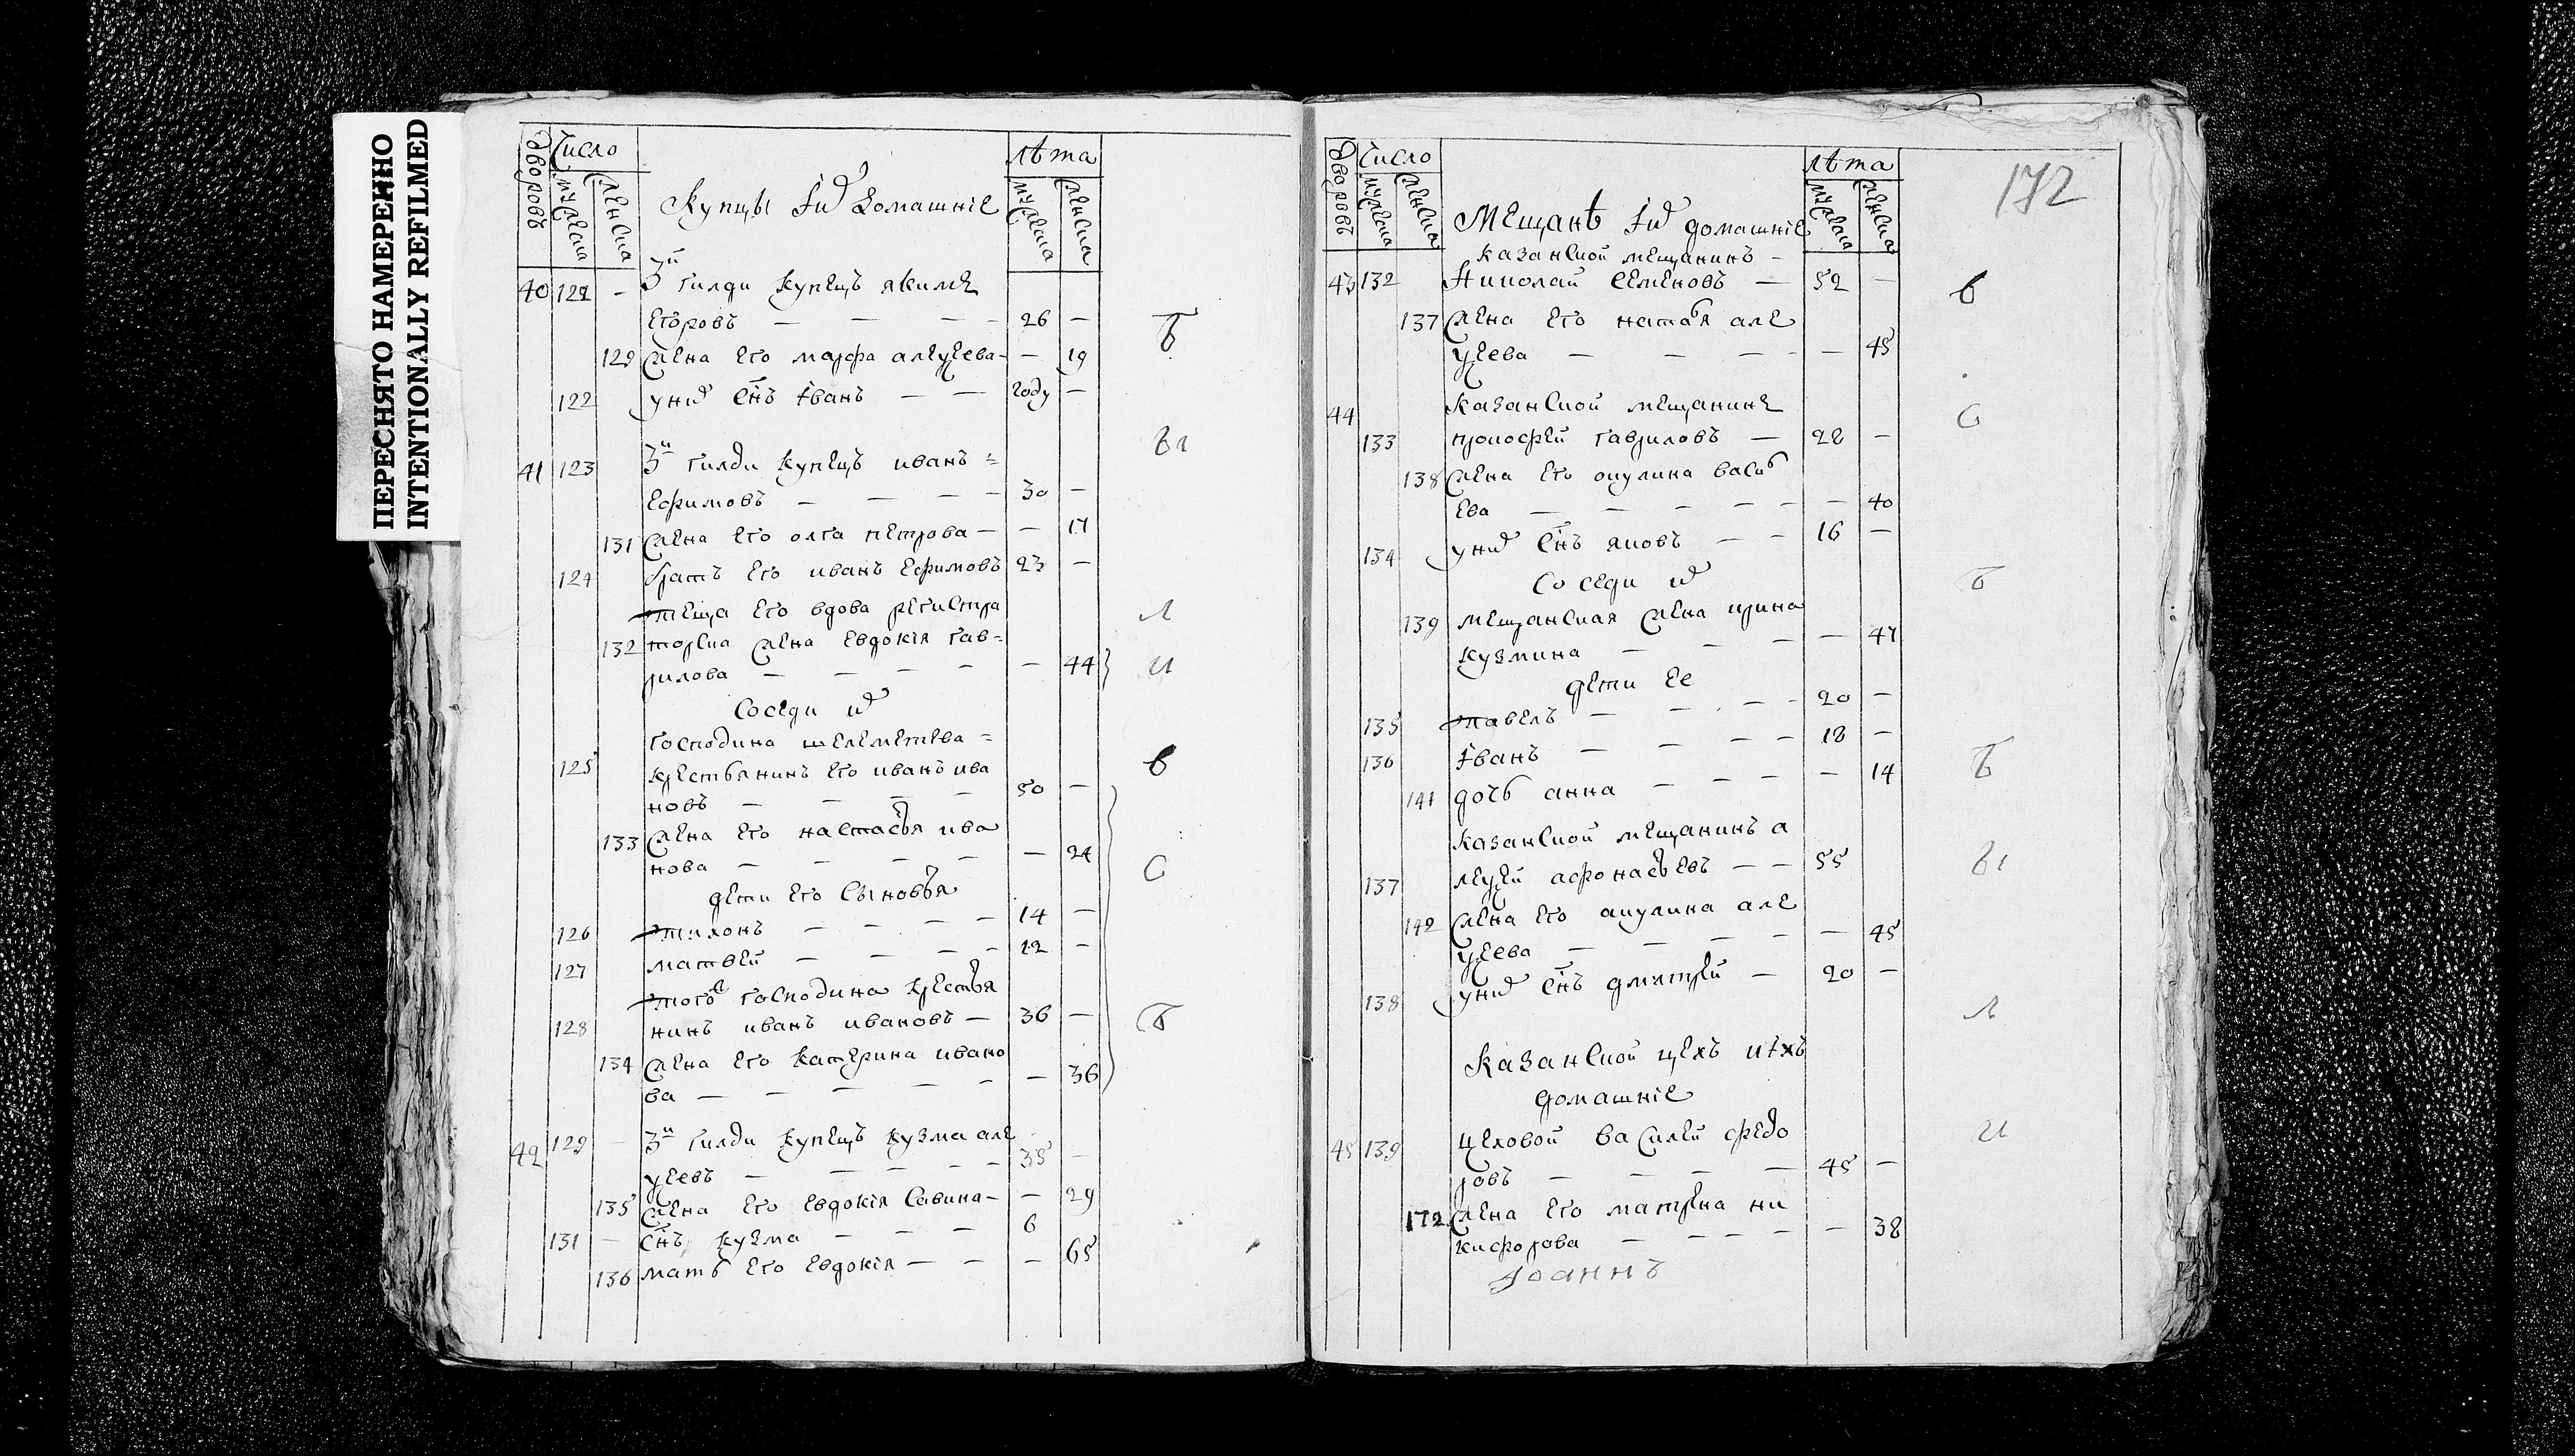 ПЕРЕСНЯТО НАМЕРЕННО
INTENTIONALLY REFILMED
Дворовъ
Число
мужеска
женска
Купцы іх домашніе
лѣта
мужеска
женска
40 121 - 3й гилди купецъ якиме
Егоровъ — 26 —
129 жена его марфа алеѯеева — 19
122 у них снъ іванъ — году —
41 123 3й гилди купецъ иванъ =
Ефимовъ — 30 —
131 жена его олга петрова — 17
124 братъ его иванъ Ефимовъ 23 —
теща его вдова регистра
132 торска жена Евдокія гав=
рилова — 44
Соседи их
господина шелеметева =
125 крестьянинъ его иванъ ива
новъ — 50 —
133 жена его настасья ива
нова — 24
дети его сыновья
126 тихонъ — 14 —
127 матвей — 12 —
того господина крестья
128 нинъ иванъ ивановъ — 36 —
134 жена его катерина ивано
ва — 36
42 129 — 3й гилди купецъ кузма але
ѯеевъ — 35 —
135 жена его Евдокія Савина — 29
131 — снъ кузма — 6
136 мать его Евдокія — 65
Б
ы
л
и
в
С
Б
Дворовъ
Число
мужеска
женска
Мещанѣ іх домашніе
лѣта
мужеска
женска
172
казанской мещанинъ -
43 132 Николай Семеновъ — 52 —
137 жена его наталья але
ѯеева — 45
44 казанской мещанине
133 прокофей гавриловъ — 28 —
138 жена его окулина василь
ева — 40
134 у них снъ яковъ — 16 —
Соседи их
139 мещанская жена ирина
кузмина — 47
дети Ее
135 павелъ — 20 —
136 іванъ — 18 —
141 дочь анна — 14
казанской мещанинъ а
137 леѯей афонасьевъ — 55
142 жена его акулина але
ѯеева — 45
138 у них снъ дмитрей — 20 —
Казанской цехъ иіхъ
домашніе
45 139 цеховой василей федо
ровъ — 45 —
172 жена его матрена ни
кифорова — 38
Іоаннъ
в
С
Б
Б
ы
л
и